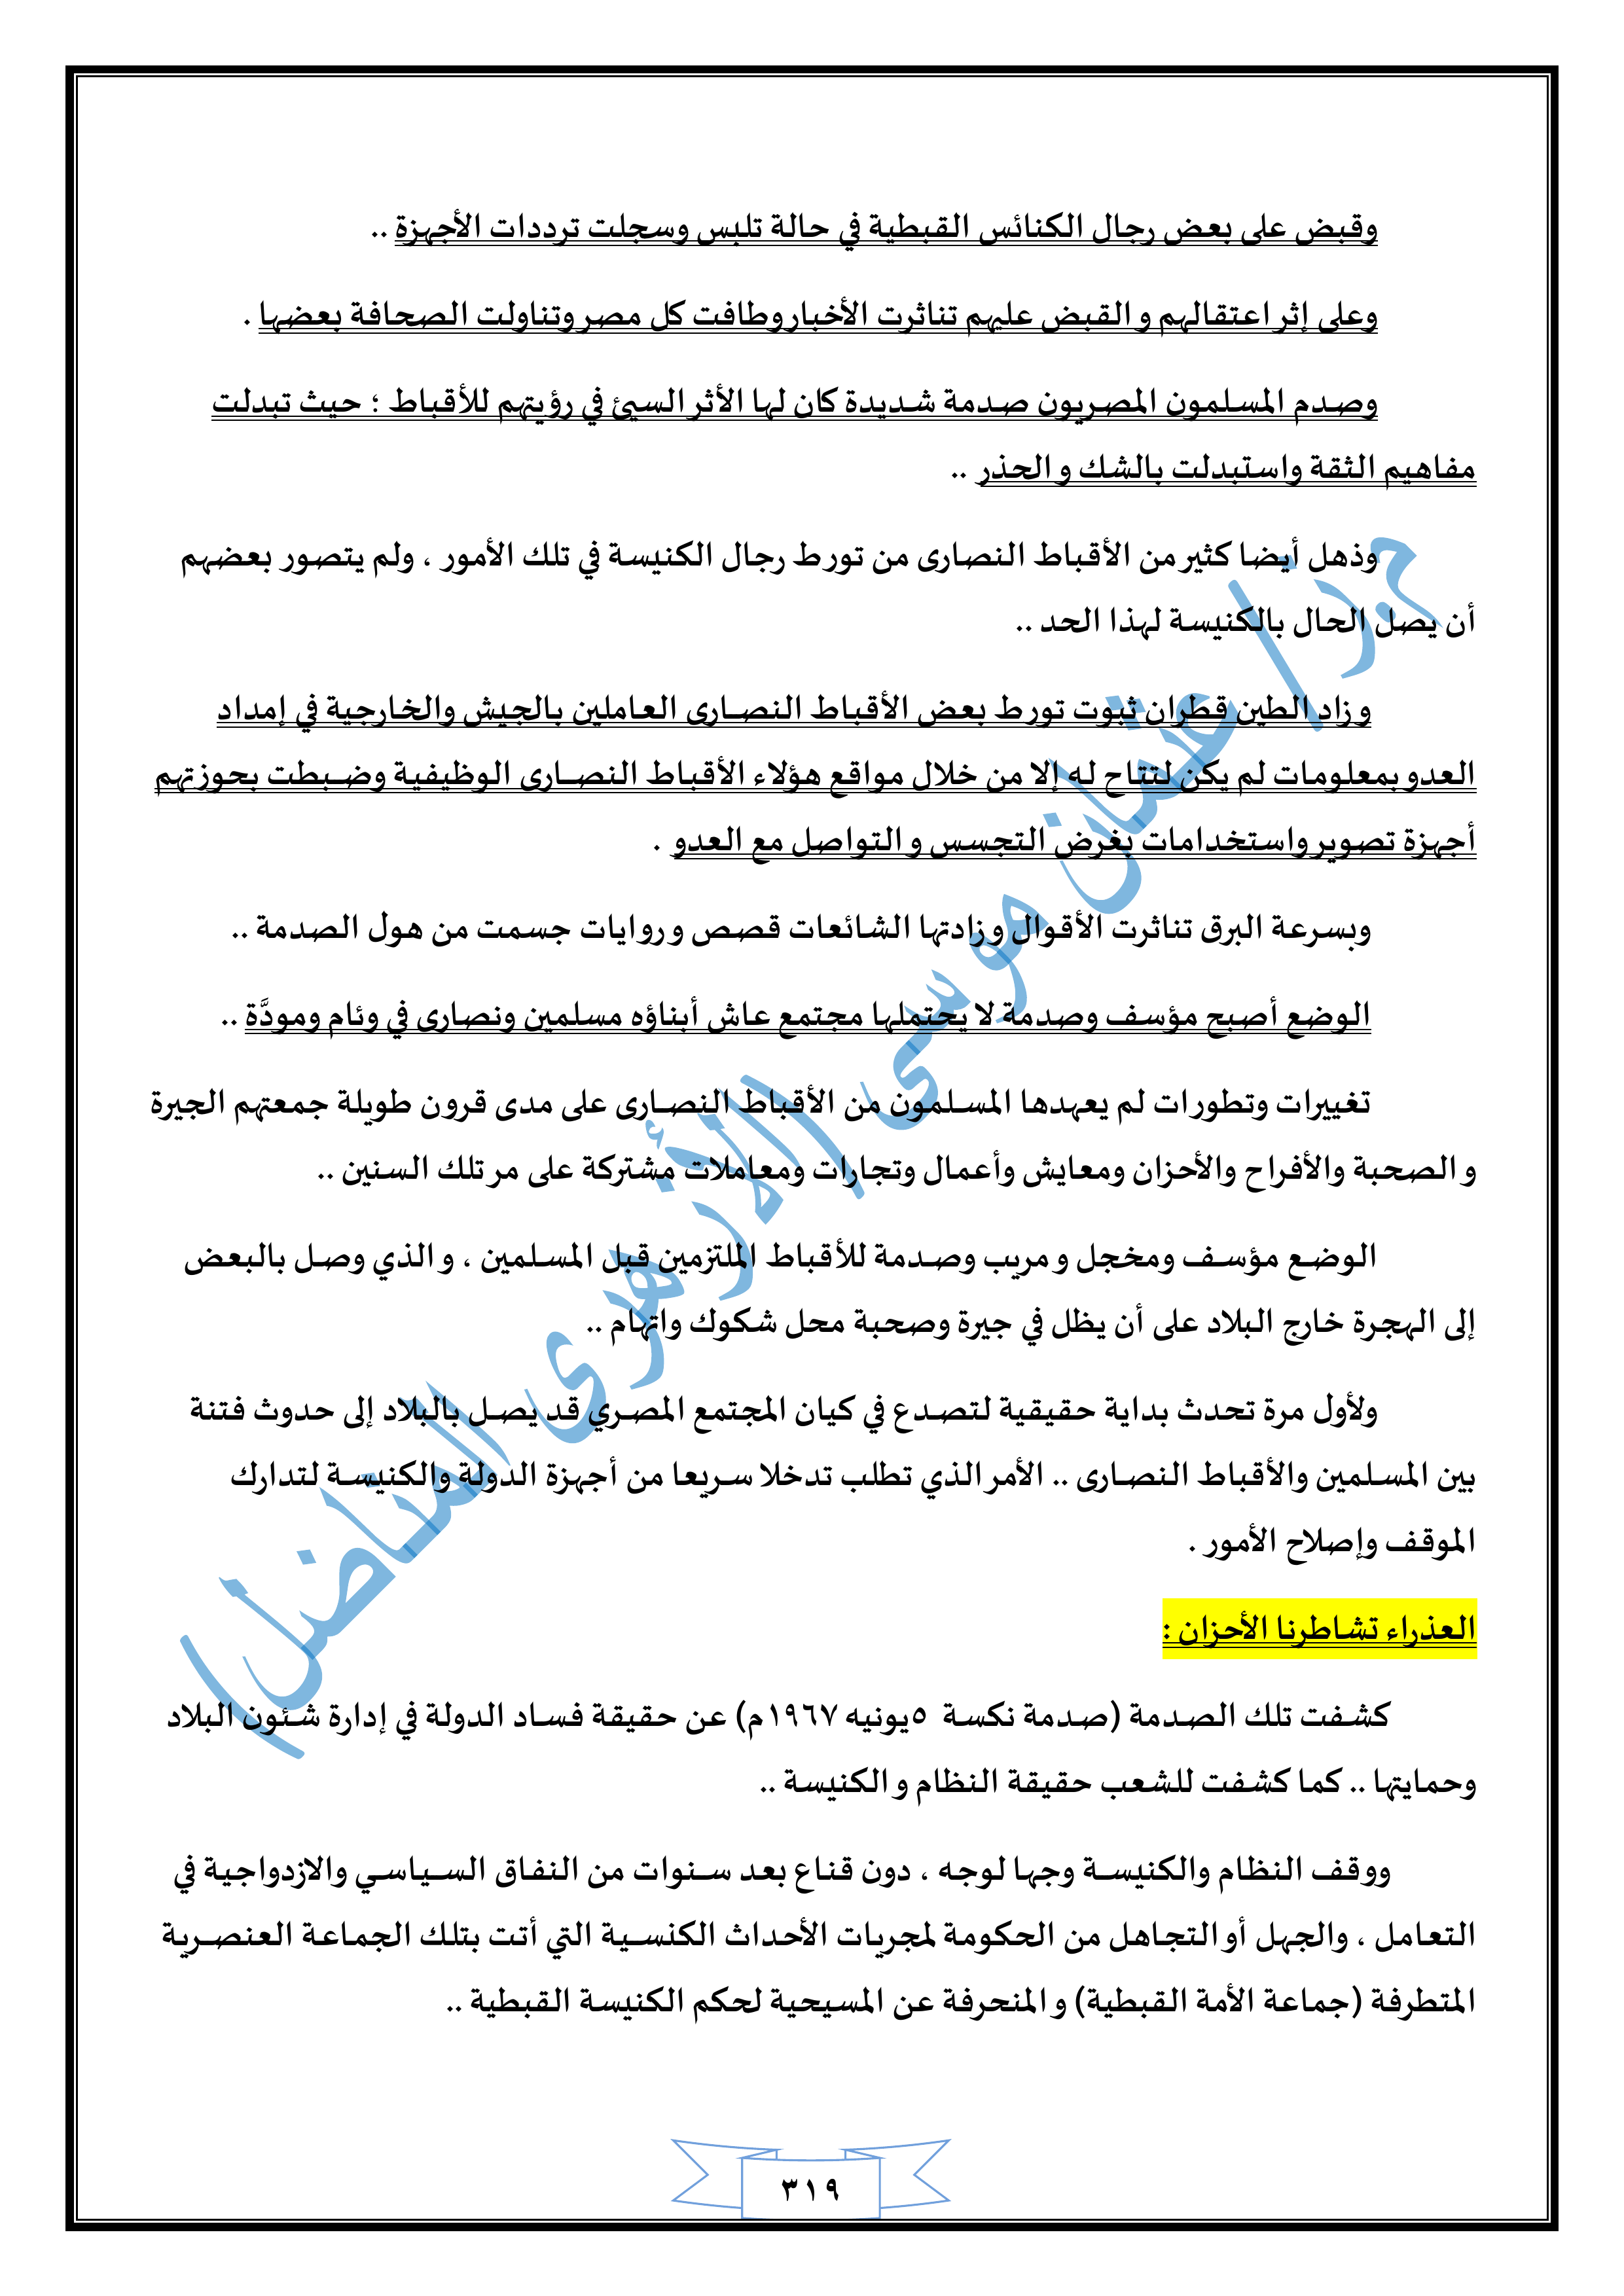 وقبض على بعض رجال الكنائس القبطية في حالة تلبس وسجلت ترددات الأجهزة ..
وعلى إثر اعتقالهم والقبض عليهم تناثرت الأخبار وطافت كل مصر وتناولت الصحافة بعضها .
وصدم المسلمون المصريون صدمة شديدة كان لها الأثر السيئ في رؤيتهم للأقباط ؛ حيث تبدلت
مفاهيم الثقة واستبدلت بالشك والحذر ..
وذهل أيضا كثير من الأقباط النصارى من تورط رجال الكنيسة في تلك الأمور ، ولم يتصور بعضهم
أن يصل الحال بالكنيسة لهذا الحد ..
وزاد الطين قطران ثبوت تورط بعض الأقباط النصارى العاملين بالجيش والخارجية في إمداد
العدو بمعلومات لم يكن لتتاح له إلا من خلال مواقع هؤلاء الأقباط النصارى الوظيفية وضبطت بحوزتهم
أجهزة تصوير واستخدامات بغرض التجسس والتواصل مع العدو .
وبسرعة البرق تناثرت الأقوال وزادتها الشائعات قصص وروايات جسمت من هول الصدمة ..
الوضع أصبح مؤسف وصدمة لا يحتملها مجتمع عاش أبناؤه مسلمين ونصارى في وئام ومودَّة ..
تغييرات وتطورات لم يعهدها المسلمون من الأقباط النصارى على مدى قرون طويلة جمعتهم الجيرة
والصحبة والأفراح والأحزان ومعايش وأعمال وتجارات ومعاملات مشتركة على مر تلك السنين ..
الوضع مؤسف ومخجل ومريب وصدمة للأقباط الملتزمين قبل المسلمين ، والذي وصل بالبعض
إلى الهجرة خارج البلاد على أن يظل في جيرة وصحبة محل شكوك واتهام ..
ولأول مرة تحدث بداية حقيقية لتصدع في كيان المجتمع المصري قد يصل بالبلاد إلى حدوث فتنة
بين المسلمين والأقباط النصارى .. الأمر الذي تطلب تدخلا سريعا من أجهزة الدولة والكنيسة لتدارك
الموقف وإصلاح الأمور .
العذراء تشاطرنا الأحزان :
كشفت تلك الصدمة (صدمة نكسة ٥يونيه ١٩٦٧م) عن حقيقة فساد الدولة في إدارة شئون البلاد
وحمايتها .. كما كشفت للشعب حقيقة النظام والكنيسة ..
ووقف النظام والكنيسة وجها لوجه ، دون قناع بعد سنوات من النفاق السياسي والازدواجية في
التعامل ، والجهل أو التجاهل من الحكومة لمجريات الأحداث الكنسية التي أتت بتلك الجماعة العنصرية
المتطرفة (جماعة الأمة القبطية) والمنحرفة عن المسيحية لحكم الكنيسة القبطية ..
٣١٩
م.بد/ عثمان موسى (الأزهرى المناضل)